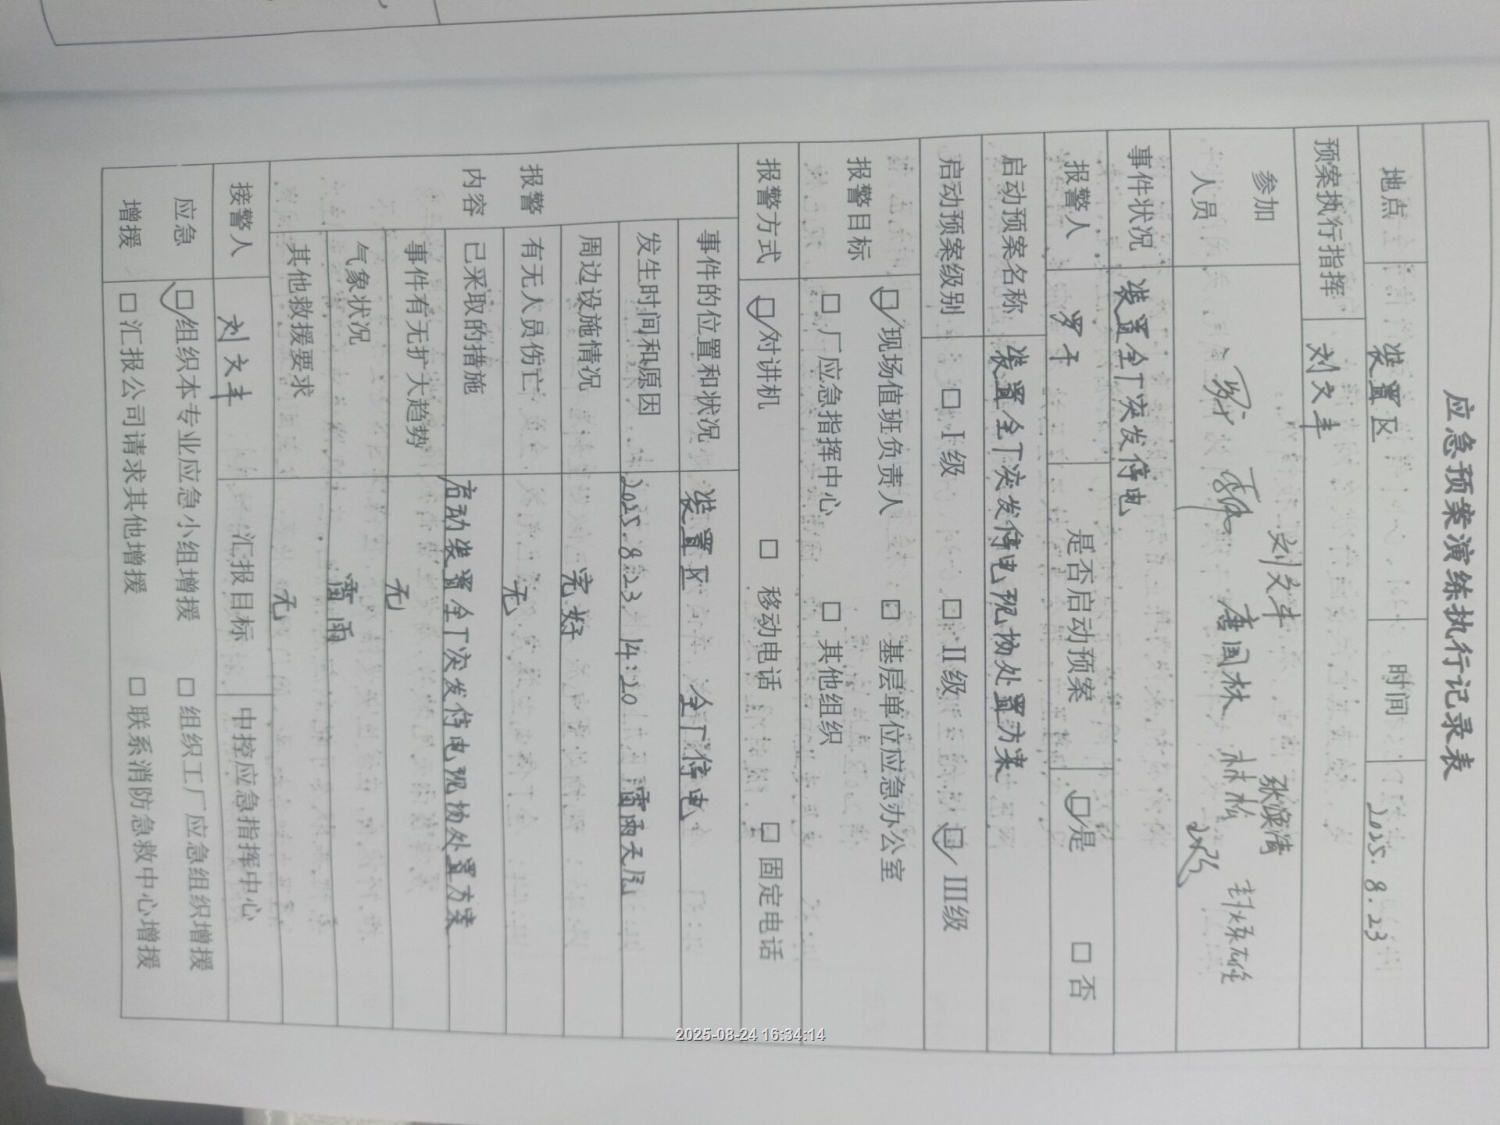 应急预案演练执行记录表
地点 装置区 时间 2025.8.23
预案执行指挥 刘文丰
参加人员 刘文丰 张滨清
唐国林 林松
事件状况 装置全厂突发停电
报警人 是否启动预案 ☑是 □否
启动预案名称 装置全厂突发停电现场处置方案
启动预案级别 □ I级 □ II级 ☑ III级
报警目标 ☑现场值班负责人 □ 基层单位应急办公室
□ 厂应急指挥中心 □ 其他组织
报警方式 ☑对讲机 □ 移动电话 □ 固定电话
报警内容
事件的位置和状况 装置区 全厂停电
发生时间和原因 2025.8.23. 14:20 雷雨天气
周边设施情况 完好
有无人员伤亡 无
已采取的措施 启动装置全厂突发停电现场处置方案
事件有无扩大趋势 无
气象状况 雷雨
其他救援要求 无
接警人 刘文丰 汇报目标 中控应急指挥中心
应急增援 ☑组织本专业应急小组增援 □ 组织工厂应急组织增援
□ 汇报公司请求其他增援 □ 联系消防急救中心增援
2025-08-24 16:34:14